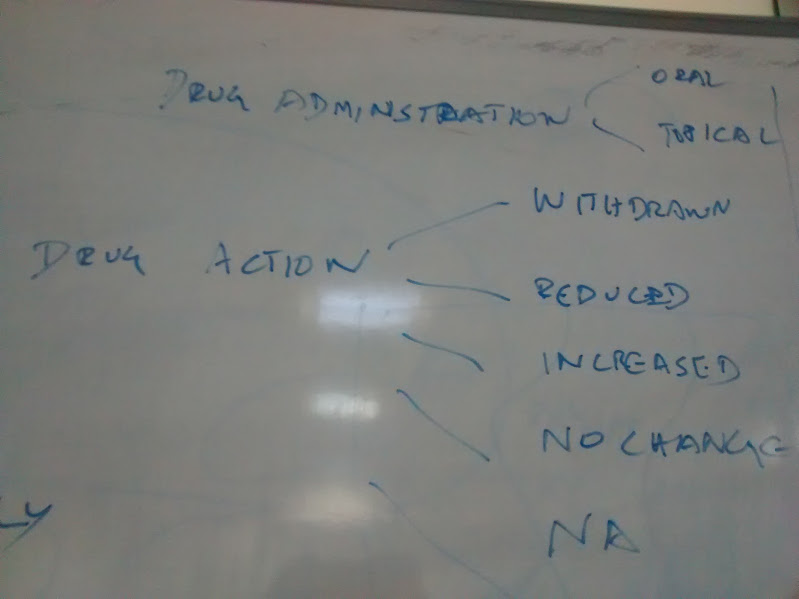 DRUG ADMINSTRATION
ORAL
TOPICAL
DRUG ACTION
WITHDRAWN
REDUCED
INCREASED
NO CHANGE
NA
LY